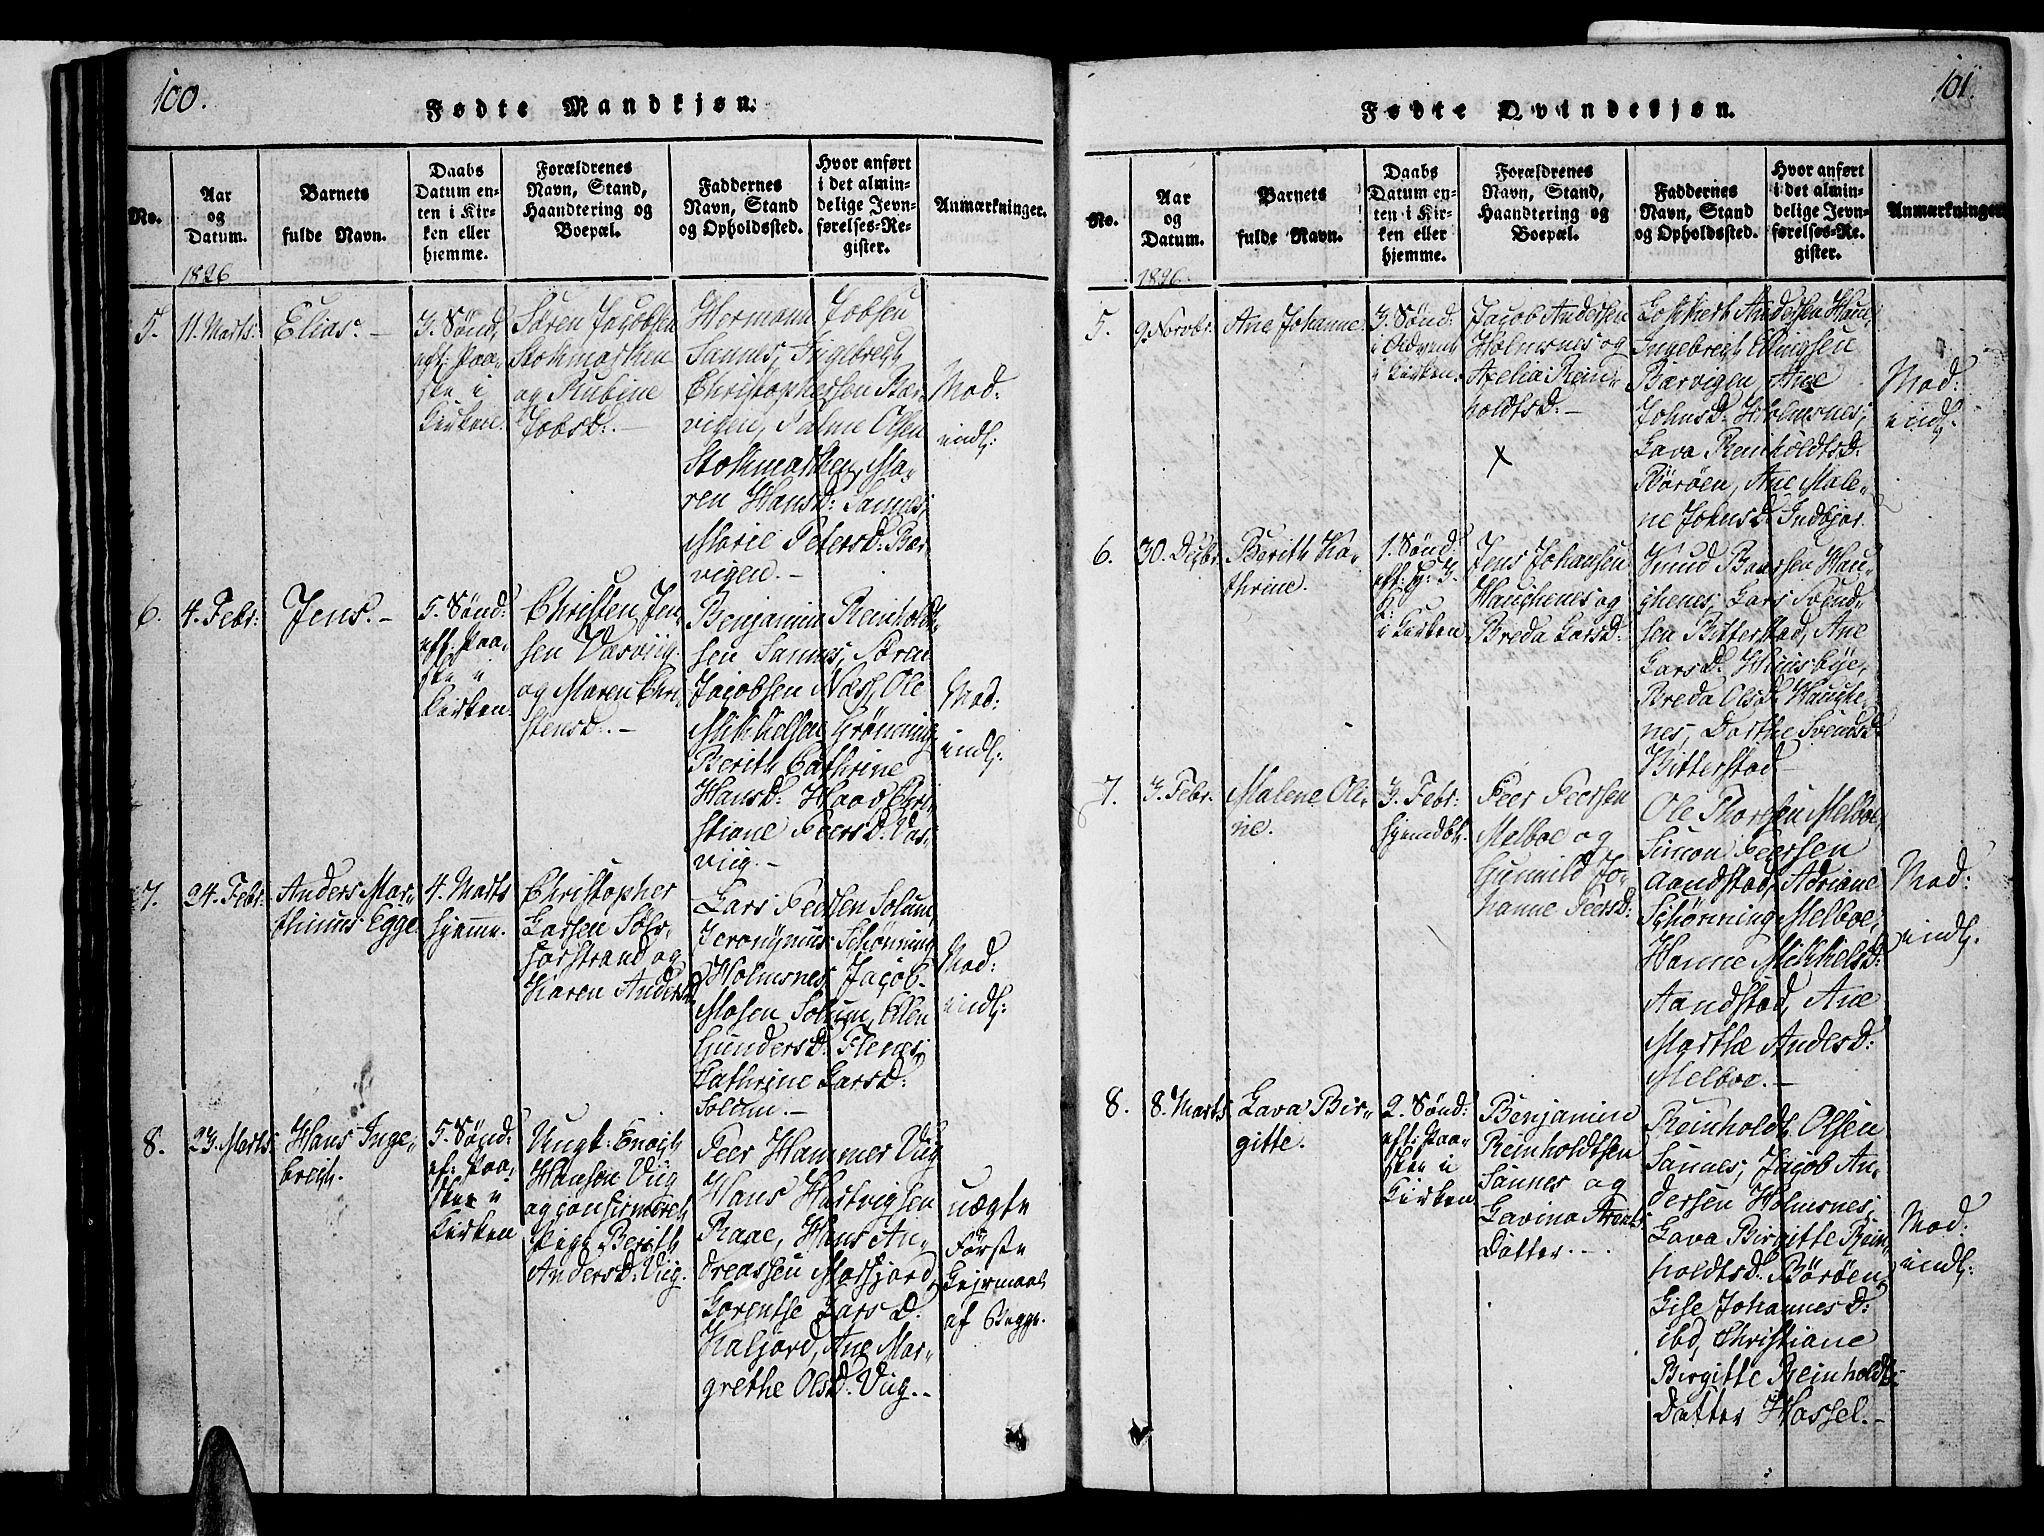 100.
Fødte Mandkjøn.
No.
Aar og Datum.
Barnets fulde Navn.
Daabs Datum enten i Kirken eller hjemme.
Forældrenes Navn, Stand, Haandtering og Boepæl.
Faddernes Navn, Stand og Opholdssted.
Hvor anført i det almindelige Jevnførelses-Register.
Anmærkninger.
1826
5.
11. Marts.
Elias. –
3. Sønd.
eft: Paa-
ske i
Kirken.
Søren Jacobsen
Stokmarken
og Rubine
Jobsd. –
Hermann Jobsen
Sannes, Ingebregt
Christophersen Bar-
vigen, Palme Olsen
Stokmarken, Ma-
ren Hansd: Sannes,
Marie Petersd: Bar-
vigen. –
Mod:
indl:
6.
4. Febr:
Jens. –
5. Sønd:
eft: Paa-
ske i
Kirken.
Christen Jen-
sen Vasviig
og Maren Chri-
stensd. –
Benjamin Reinholdt-
sen Sannes, Søren
Jacobsen Næss, Ole
Mikkelsen Grønning
Berith Cathrine
Hansd: Haav, Chri-
stiane Peersd. Vas-
viig. –
Mod:
indl:
7.
24. Febr.
Anders Mar-
thinus Egge
4. Marts
hjemme.
Christopher
Larsen
og
Karen Andersd.
Lars Peersen Solum,
Jeronymus Schønning
Holmsnes, Jacob
Mosen Solum, Ellen
Gundersd: Flenes,
Cathrine Larsd:
Solum. –
Mod:
indl:
8.
23. Marts.
Hans Inge-
breigt.
5. Sønd:
ef: Paa-
ske i
Kirken
Ungk: Enoch
Hansen Viig
og confirmeret
Pige Berith
Andersd. Viig.
Peer Hammer Viig
Hans Hartvigsen
Raae, Hans An-
dreassen Molfjord,
Lorentse Larsd.
Kaljord, Ane Mar-
grethe Olsd. Viig. –
uægte
Første
Leiermaal
af Begge.
101.
Fødte Qvindekjøn.
No.
Aar og Datum.
Barnets fulde Navn.
Daabs Datum enten i Kirken eller hjemme.
Forældrenes Navn, Stand, Haandtering og Boepæl.
Faddernes Navn, Stand og Opholdssted.
Hvor anført i det almindelige Jevnførelses-Register.
Anmærkninger.
1826.
5.
9. Novbr.
Ane Johanne.
3. Sønd:
i Advent
i Kirken.
Jacob Andersen
Holmsnes og
Axelia Rein-
holdtsd. –
x
Andersen
Ingebregt Ellingsen
Barvigen, Ane
Johnsd: Holmsnes;
Lava Reinholdtsd.
Børøen, Ane Male-
ne Johnsd. Indbjor.
Mod:
indl:
6.
30. Decbr.
Berith Ka-
thrine.
1. Sønd:
eft: H: 3
K:
i Kirken
Jens Johansen
Haukenes og
Breda Larsd:
Knud Baarsen Hau-
kenes, Lars Svend-
sen Bitterstad, Ane
Larsd: Huusbye,
Breda Olsd. Hauke-
nes, Dorthe Svendsd.
Bitterstad
7.
3. Febr.
Malene Oli-
ne.
3. Febr:
hjemdbt.
Peer Peersen
Melboe og
Gunnild Jo-
hanne Peersd:
Ole Thorsen Melboe,
Simon Peersen
Aandstad, Adriane
Schønning Melboe,
Hanne Mikkelsd:
Aandstad, Ane
Marthe Andesd:
Melboe. –
Mod:
indl:
8.
8. Marts
Lava Bir-
gitte.
2. Sønd:
eft: Paa-
ske i
Kirken
Benjamin
Reinholdtsen
Sannes og
Lavina Arents
Datter. –
Reinholdt Olsen
Sannes, Jacob An-
dersen Holmsnes,
Lava Birgitte Rein-
holdtsd. Børøen,
Lise Johannesd:
ibd, Christiane
Birgitte Reinholdts-
Datter Hassel. –
Mod:
indl: